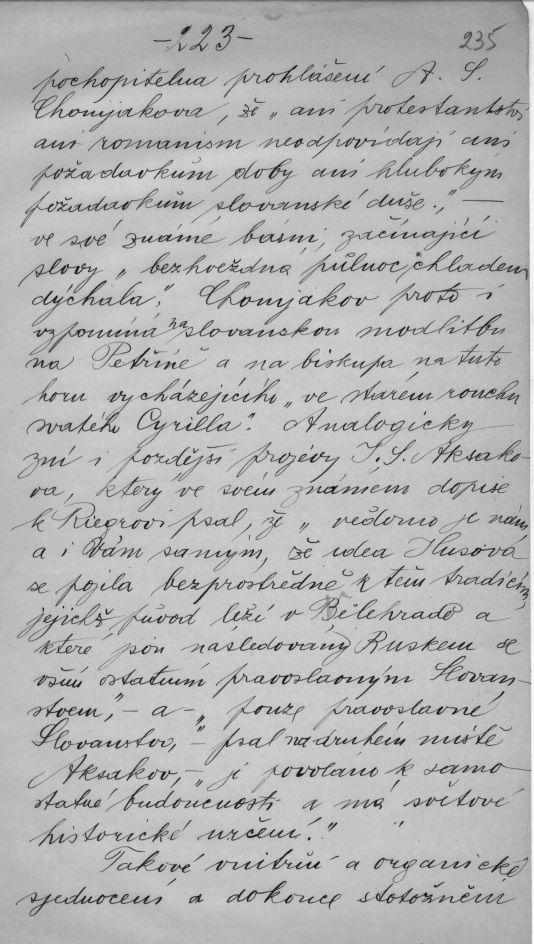 -223-
235
pochopitelna prohlášení A. S.
Chomjakova, že „ani protestantství
ani romanism neodpovídají ani
požadavkům doby ani hlubokým
požadavkům slovanské duše.,“ —
ve své známé básni, začínající
slovy „bezhvězdná půlnoc chladem
dýchala“, Chomjakov proto i
vzpomíná na slovanskou modlitbu
na Petříně a na biskupa, na tuto
horu vycházejícího „ve starém rouchu
svatého Cyrilla“. Analogicky
zní i pozdější projevy I. S. Aksako-
va, který ve svém známém dopise
k Riegrovi psal, že „vědomo je nám,
a i Vám samým, že idea Husova
se pojila bezprostředně k těm tradicím,
jejichž původ leží v Bělehradě a
které jsou následovány Ruskem se
vším ostatním pravoslavným Slovan-
stvem“, - a - „pouze pravoslavné
Slovanstvo, “ psal na druhém místě
Aksakov, - „je povoláno k samo-
statné budoucnosti a má světové
historické určení.“
Takové vnitřní a organické
sjednocení a dokonce stotožnění